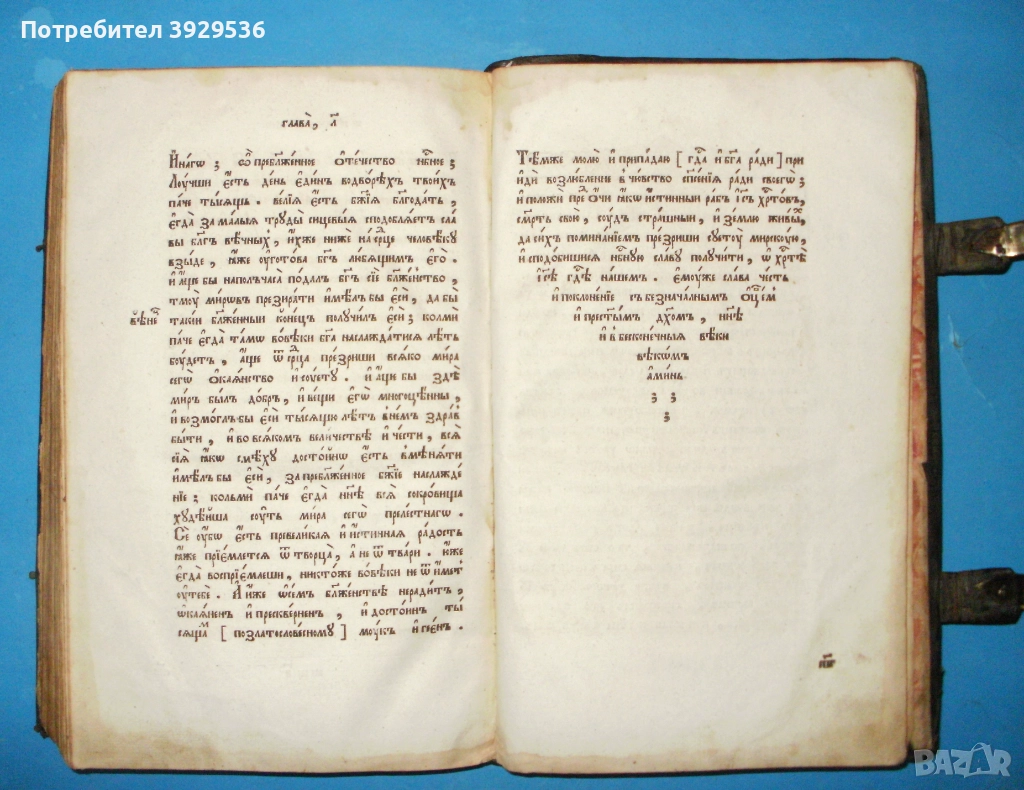 Потребител 3929536
глава̀, л҃
И҆нагѡ ; ѽ пребл҃женное ѻ҆те́чество нб҃ное ;
Лоучши є҆сть день є҆ди́нъ водворѣ́хъ твои́хъ
па́че тысящь . ве́лїѧ є҆сть бж҃їѧ благода́ть ,
є҆гда̀ за ма́лыѧ труды̀ сицевыѧ сподоблѧ́етъ сла
вы бл҃гъ вѣ́чныхъ , и҆́хже нижѐ на срⷣце человѣ́ку
взы́де , ꙗ҆̀же оу҆гото́ва бг҃ъ лю́бящимъ є҆го̀ .
И҆ а҆́ще бы наполъчаса̀ пода́лъ бг҃ъ сїѐ бл҃же́нство ,
тмоу̀ мирѡ́въ презира́ти и҆мѣ́лъ бы є҆сѝ , да бы
вѣ́чне
такѝ бл҃же́нный коне́цъ получи́лъ є҆сѝ ; колмѝ
па́че є҆гда̀ та́мѡ во вѣ́ки бг҃а наслажда́тися лѣ́ть
боу́детъ , а҆́ще ѿ срⷣца пре́зриши всѧ́ко ми́ра
сегѡ̀ ѻ҆каѧ́нство и҆ соуетоу̀ . И҆ а҆́ще бы здѣ̀
ми́ръ бы́лъ до́бръ , и҆ ве́щи є҆гѡ̀ многоцѣ́нны ,
и҆ возмо́глъ бы є҆сѝ ты́сящоу лѣ́тъ в не́мъ здра́въ
бы́ти , и҆ во всѧ́комъ вели́чествѣ и҆ че́сти , всѧ̀
сїѧ̀ ꙗ҆́кѡ смѣ́ху досто́йнѡ є҆сть вмѣнѧ́ти
и҆мѣ́лъ бы є҆сѝ , за пребл҃же́нное бж҃їе наслажде́
нїе ; кольмѝ па́че є҆гда̀ нн҃ѣ всѧ̀ сокро́вища
худѣ́йша соу́ть ми́ра сегѡ̀ преле́стнагѡ .
Сѐ оу҆́бѡ є҆́сть превели́каѧ и҆ и҆́стиннаѧ ра́дость
ꙗ҆́же прїе́млется ѿ творца̀ , а҆ не ѿ тва́ри . ю҆́же
є҆гда̀ воспрїе́млеши , никто́же во вѣ́ки не ѿи́метъ
оу҆ тебѐ . И҆ и҆́же ѻ҆ се́мъ бл҃же́нствѣ неради́тъ ,
ѻ҆каѧ́ненъ и҆ прескве́рненъ , и҆ досто́инъ ты́
сящамъ [ по златословесному ] моу́къ и҆ гее́нъ .
Тѣ́мже молю̀ и҆ припа́даю [ гдⷭ҇а и҆ бг҃а ра́ди ] прі
и҆дѝ возлю́бленне в чю́вство спⷭ҇е́нїѧ ра́ди своегѡ̀ ;
и҆ положѝ пред ѻ҆́чи ꙗ҆́кѡ и҆́стинный ра́бъ і҆с҃ъ хрⷭ҇то́въ ,
сме́рть свою̀ , соу́дъ стра́шный , и҆ зе́млю живы́хъ ,
да си́хъ помина́нїемъ пре́зриши суетоу̀ мирскую ,
и҆ сподо́бишися нб҃ную сла́ву получи́ти , ѡ҆ хрⷭ҇тѣ̀
і҆с҃ѣ гдⷭ҇ѣ на́шемъ . Є҆моу́же сла́ва че́сть
и҆ поклоне́нїе съ безнача́льнымъ ѻ҆ц҃е́мъ
и҆ престы́мъ дх҃омъ , нн҃ѣ
и҆ в бесконе́чныѧ вѣ́ки
вѣкѡ́мъ
а҆ми́нь
; ;
;
BAZAR